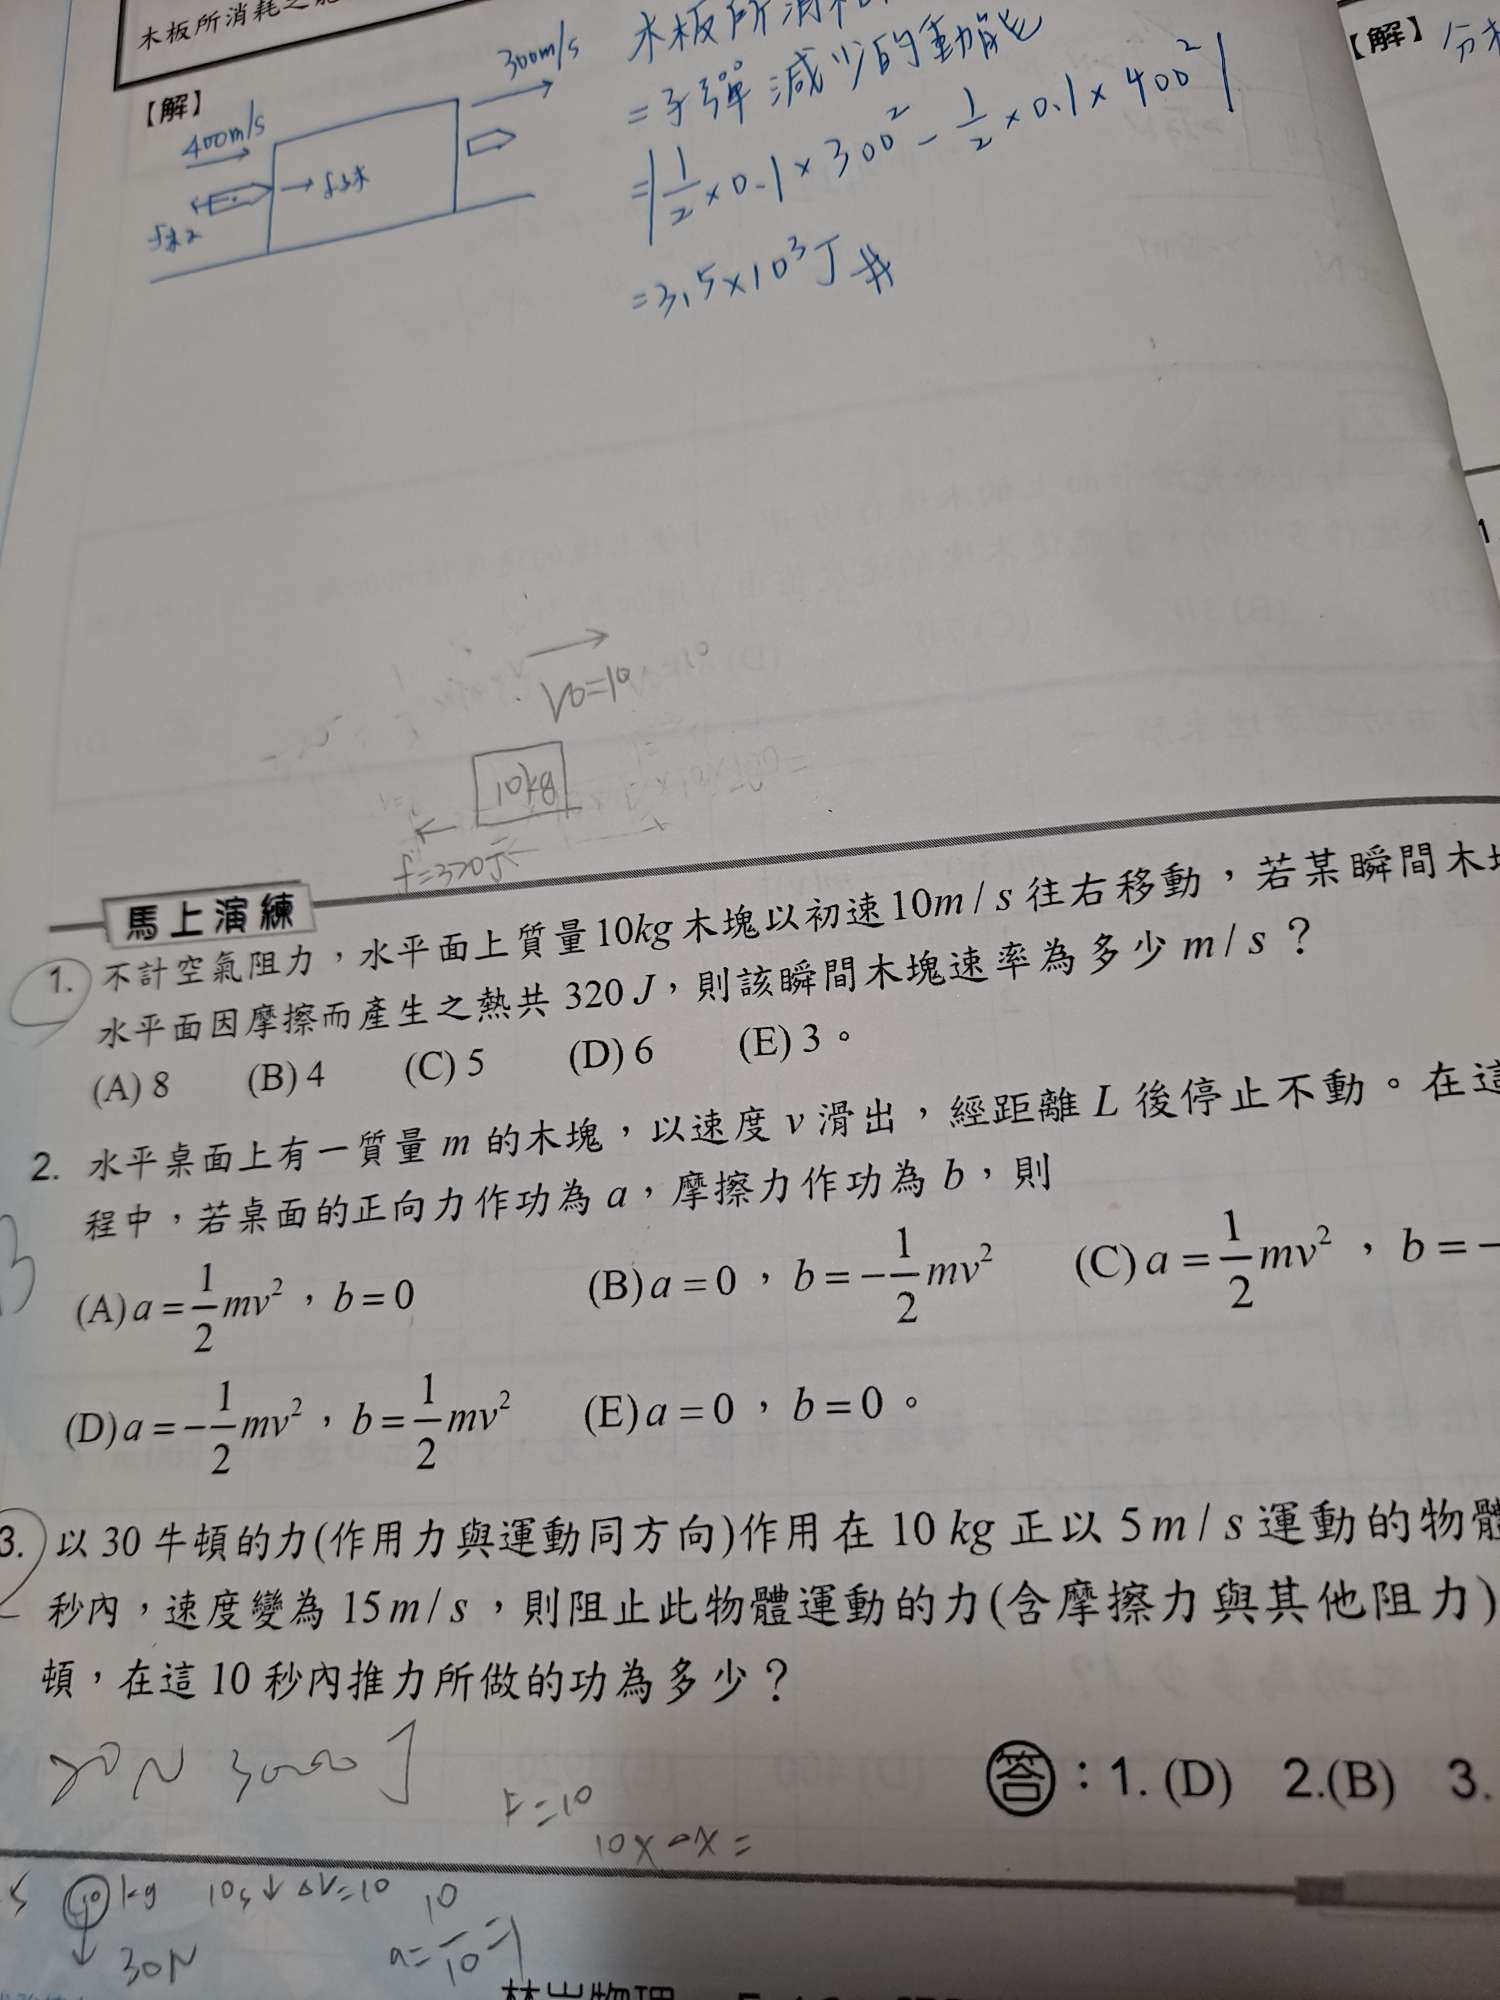 木板所消耗之
【解】
400m/s
300m/s
木板所消
=子彈減少的動能
=|1/2×0.1×300²-1/2×0.1×400²|
=3.5×10³J #
【解】
V0=10
10kg
馬上演練
1. 不計空氣阻力，水平面上質量10kg木塊以初速10m/s往右移動，若某瞬間木
水平面因摩擦而產生之熱共320J，則該瞬間木塊速率為多少m/s？
(A) 8 (B) 4 (C) 5 (D) 6 (E) 3。
2. 水平桌面上有一質量m的木塊，以速度v滑出，經距離L後停止不動。在這
程中，若桌面的正向力作功為a，摩擦力作功為b，則
(A) a=1/2mv²，b=0 (B) a=0，b=-1/2mv² (C) a=1/2mv²，b=-
(D) a=-1/2mv²，b=1/2mv² (E) a=0，b=0。
3. 以30牛頓的力(作用力與運動同方向)作用在10kg正以5m/s運動的物體
秒內，速度變為15m/s，則阻止此物體運動的力(含摩擦力與其他阻力)
頓，在這10秒內推力所做的功為多少？
20N 3000J
答：1. (D) 2.(B) 3.
F=10
10 kg 10s↓ ΔV=10
30N
a=10/10=1